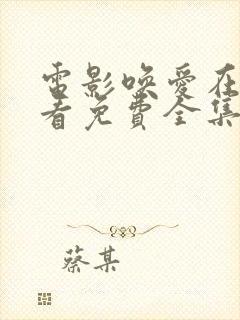 電影唤愛在
看免費全集
蔡某